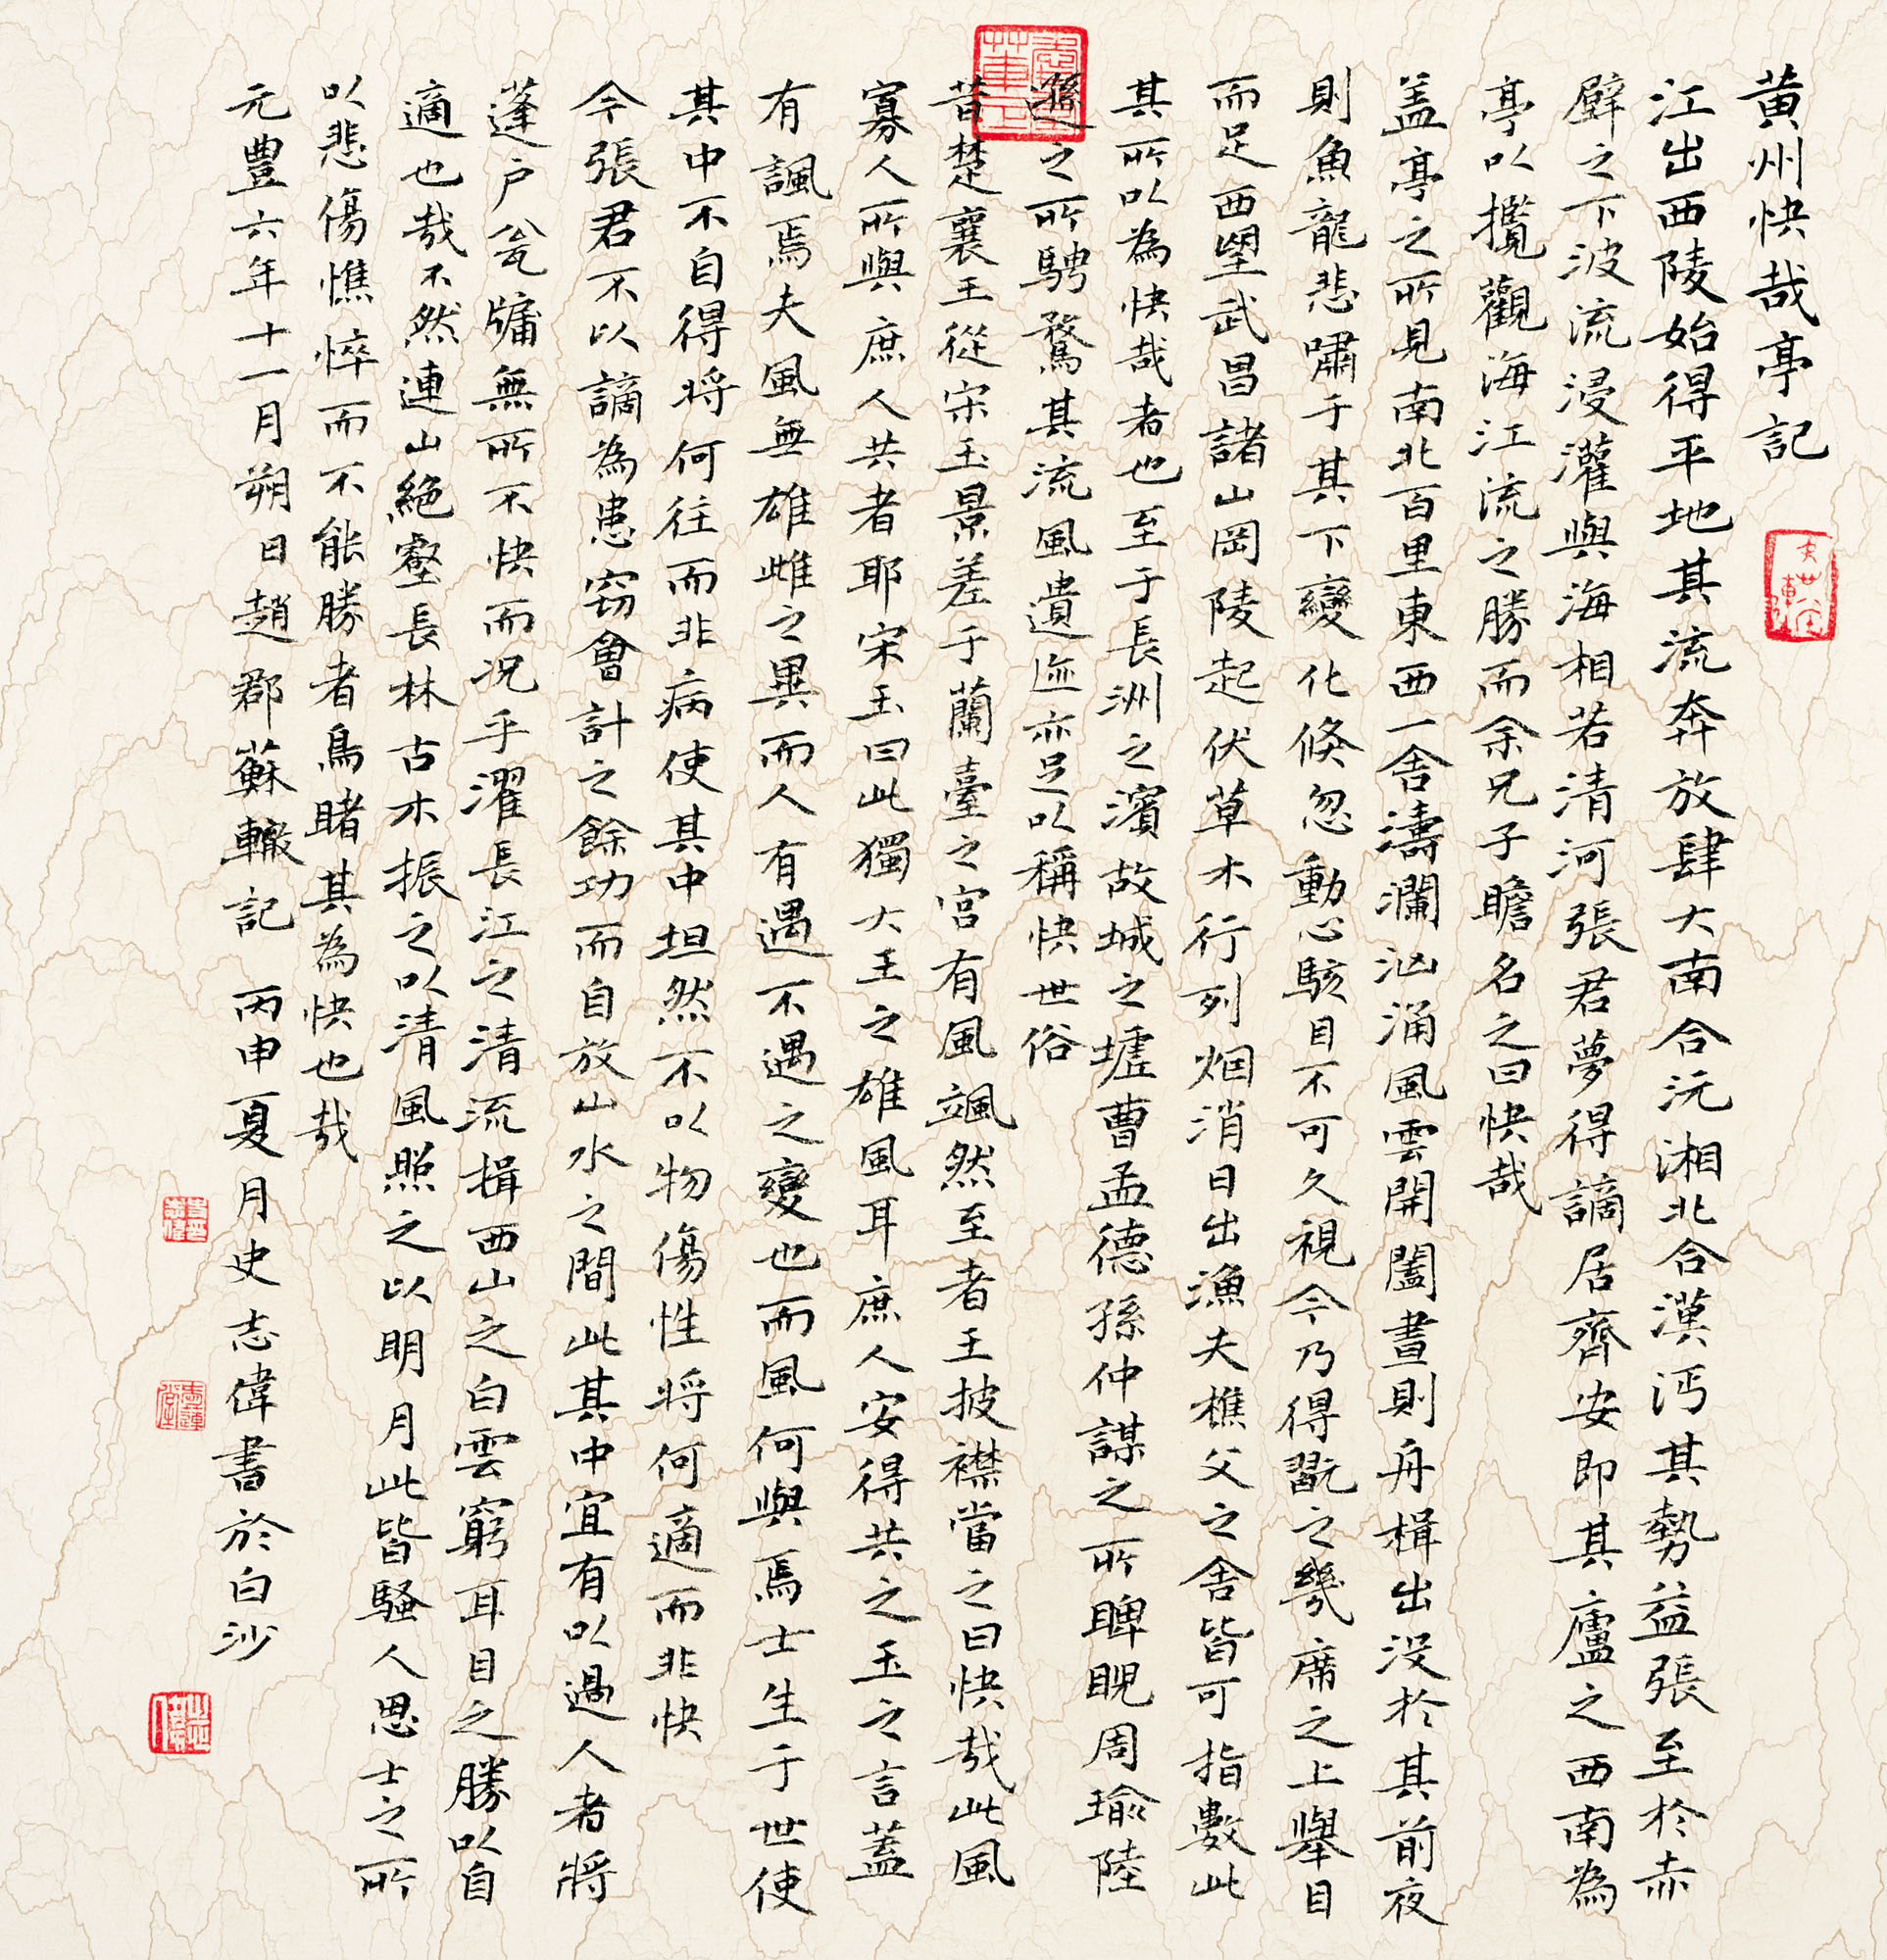 黄州快哉亭記
江出西陵始得平地其流奔放肆大南合沅湘北合漢沔其勢益張至於赤
壁之下波流浸灌與海相若清河張君夢得謫居齊安即其廬之西南為
亭以攬觀海江流之勝而余兄子瞻名之曰快哉
盖亭之所見南北百里東西一舍濤瀾汹涌風雲開闔晝則舟楫出没於其前夜
則魚龍悲嘯于其下變化倏忽動心駭目不可久視今乃得翫之幾席之上舉目
而足西望武昌諸山岡陵起伏草木行列烟消日出漁夫樵父之舍皆可指數此
其所以為快哉者也至于長洲之濱故城之墟曹孟德孫仲謀之所睥睨周瑜陸
遜之所騁騖其流風遺迹亦足以稱快世俗
昔楚襄王從宋玉景差于蘭臺之宫有風颯然至者王披襟當之曰快哉此風
寡人所與庶人共者耶宋玉曰此獨大王之雄風耳庶人安得共之玉之言蓋
有諷焉夫風無雄雌之異而人有遇不遇之變也而風何與焉士生于世使
其中不自得将何往而非病使其中坦然不以物傷性将何適而非快
今張君不以謫為患窃會計之餘功而自放山水之間此其中宜有以過人者將
蓬户瓮牖無所不快而况乎濯長江之清流揖西山之白雲窮耳目之勝以自
適也哉不然連山絶壑長林古木振之以清風照之以明月此皆騷人思士之所
以悲傷憔悴而不能勝者烏睹其為快也哉
元豊六年十一月朔日趙郡蘇轍記 丙申夏月史志偉書於白沙